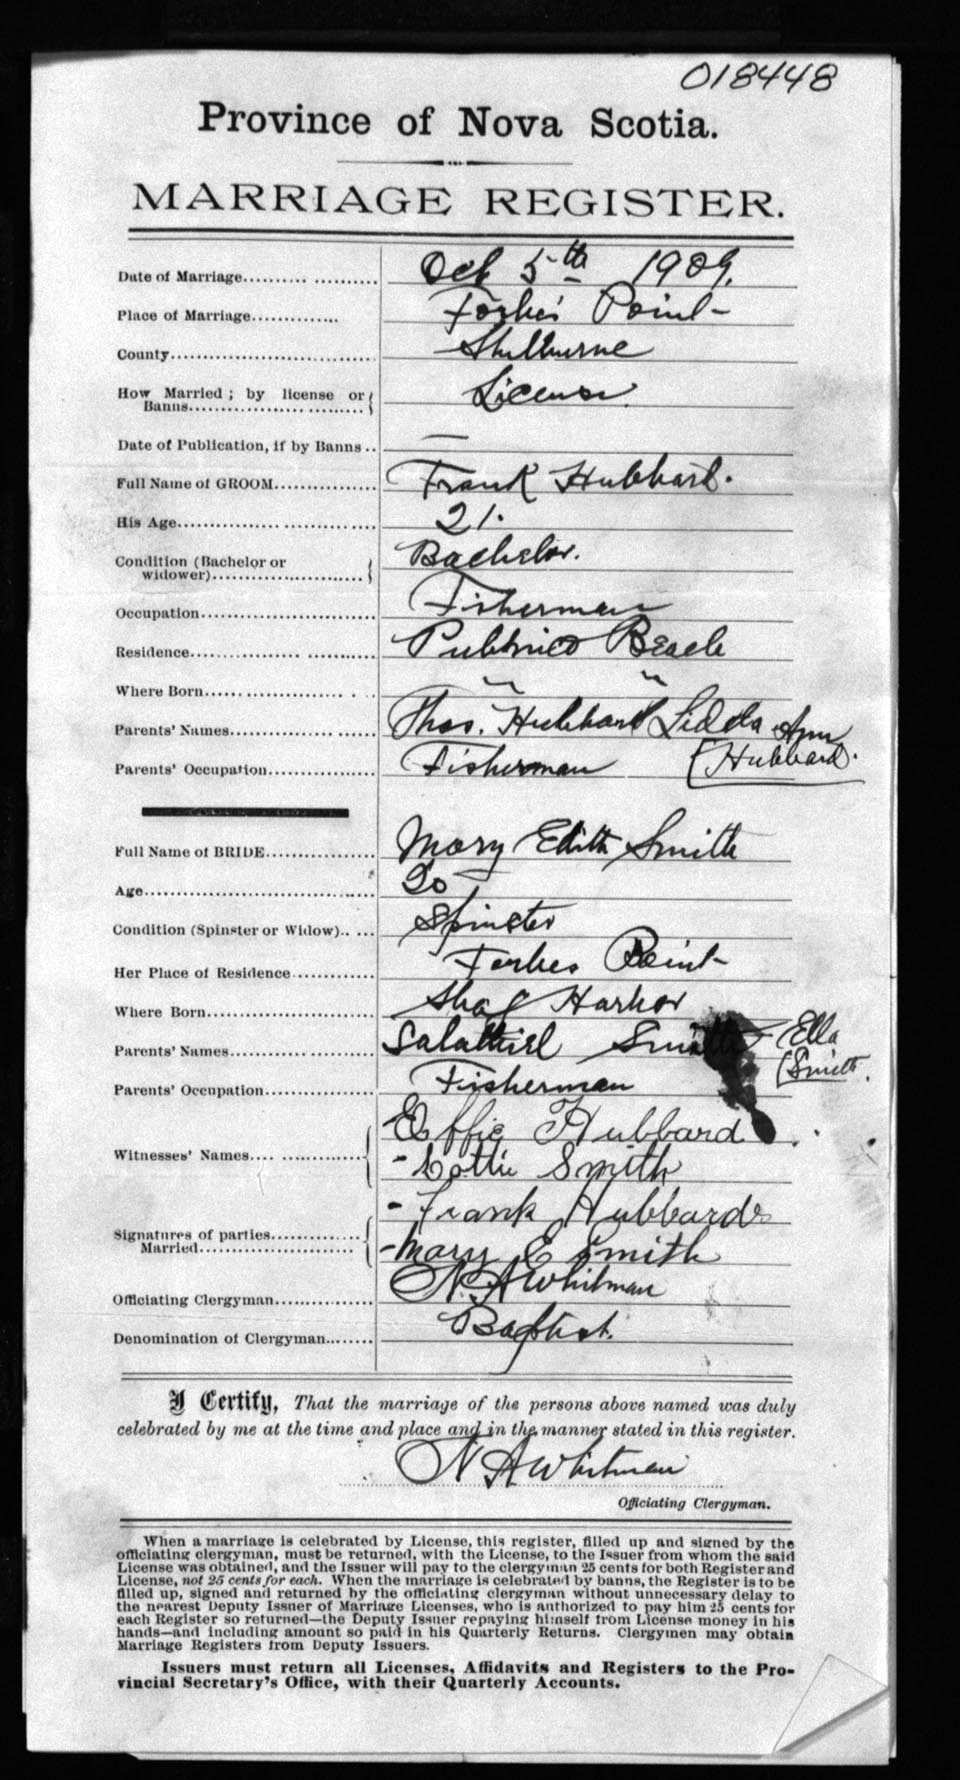 018448
Province of Nova Scotia.
MARRIAGE REGISTER.
Date of Marriage Oct 5th 1909.
Place of Marriage Forbes Point
County Shelburne
How Married ; by license or
Banns License
Date of Publication, if by Banns —
Full Name of GROOM Frank Hubbard.
His Age 21.
Condition (Bachelor or
widower) Bachelor.
Occupation Fisherman
Residence Pubnico Beach
Where Born " "
Parents' Names Thos. Hubbard Lidda Ann
(Hubbard.
Parents' Occupation Fisherman
Full Name of BRIDE Mary Edith Smith
Age 20
Condition (Spinster or Widow) Spinster
Her Place of Residence Forbes Point
Where Born Shag Harbor
Parents' Names Salathiel Smith Ella
(Smith.
Parents' Occupation Fisherman
Witnesses' Names Effie Hubbard
- Lottie Smith
Signatures of parties - Frank Hubbard
Married - Mary E Smith
Officiating Clergyman N A Whitman
Denomination of Clergyman Baptist.
I Certify, That the marriage of the persons above named was duly
celebrated by me at the time and place and in the manner stated in this register.
N A Whitman
Officiating Clergyman.
When a marriage is celebrated by License, this register, filled up and signed by the
officiating clergyman, must be returned, with the License, to the Issuer from whom the said
License was obtained, and the Issuer will pay to the clergyman 25 cents for both Register and
License, not 25 cents for each. When the marriage is celebrated by banns, the Register is to be
filled up, signed and returned by the officiating clergyman without unnecessary delay to
the nearest Deputy Issuer of Marriage Licenses, who is authorized to pay him 25 cents for
each Register so returned—the Deputy Issuer repaying himself from License money in his
hands—and including amount so paid in his Quarterly Returns. Clergymen may obtain
Marriage Registers from Deputy Issuers.
Issuers must return all Licenses, Affidavits and Registers to the Pro-
vincial Secretary's Office, with their Quarterly Accounts.